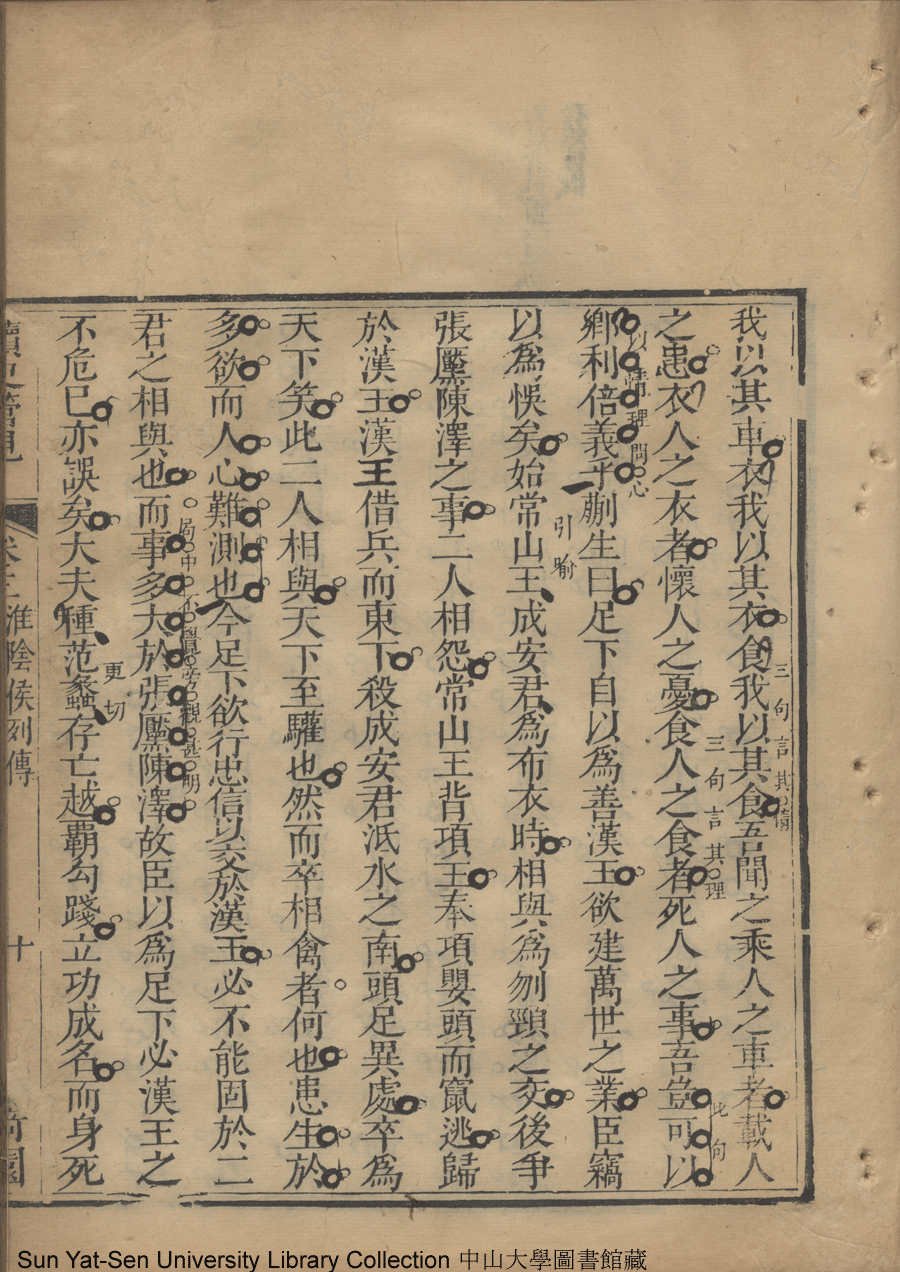 我以其車衣我以其衣食我以其食吾聞之乘人之車者載人
三句言其情
之患衣人之衣者懷人之憂食人之食者死人之事吾豈可以
三句言其理
此句
鄉利倍義乎蒯生曰足下自以爲善漢王欲建萬世之業臣竊
以情理問心
以爲悞矣始常山王成安君爲布衣時相與爲刎頸之交後爭
引喻
張黶陳澤之事二人相怨常山王背項王奉項嬰頭而竄逃歸
於漢王漢王借兵而東下殺成安君泜水之南頭足異處卒爲
天下笑此二人相與天下至驩也然而卒相禽者何也患生於
多欲而人心難測也今足下欲行忠信以交於漢王必不能固於二
君之相與也而事多大於張黶陳澤故臣以爲足下必漢王之
局中不覺旁觀甚明
不危已亦誤矣大夫種范蠡存亡越霸勾踐立功成名而身死
更切
讀史管見 卷三淮陰侯列傳 十
Sun Yat-Sen University Library Collection 中山大學圖書館藏